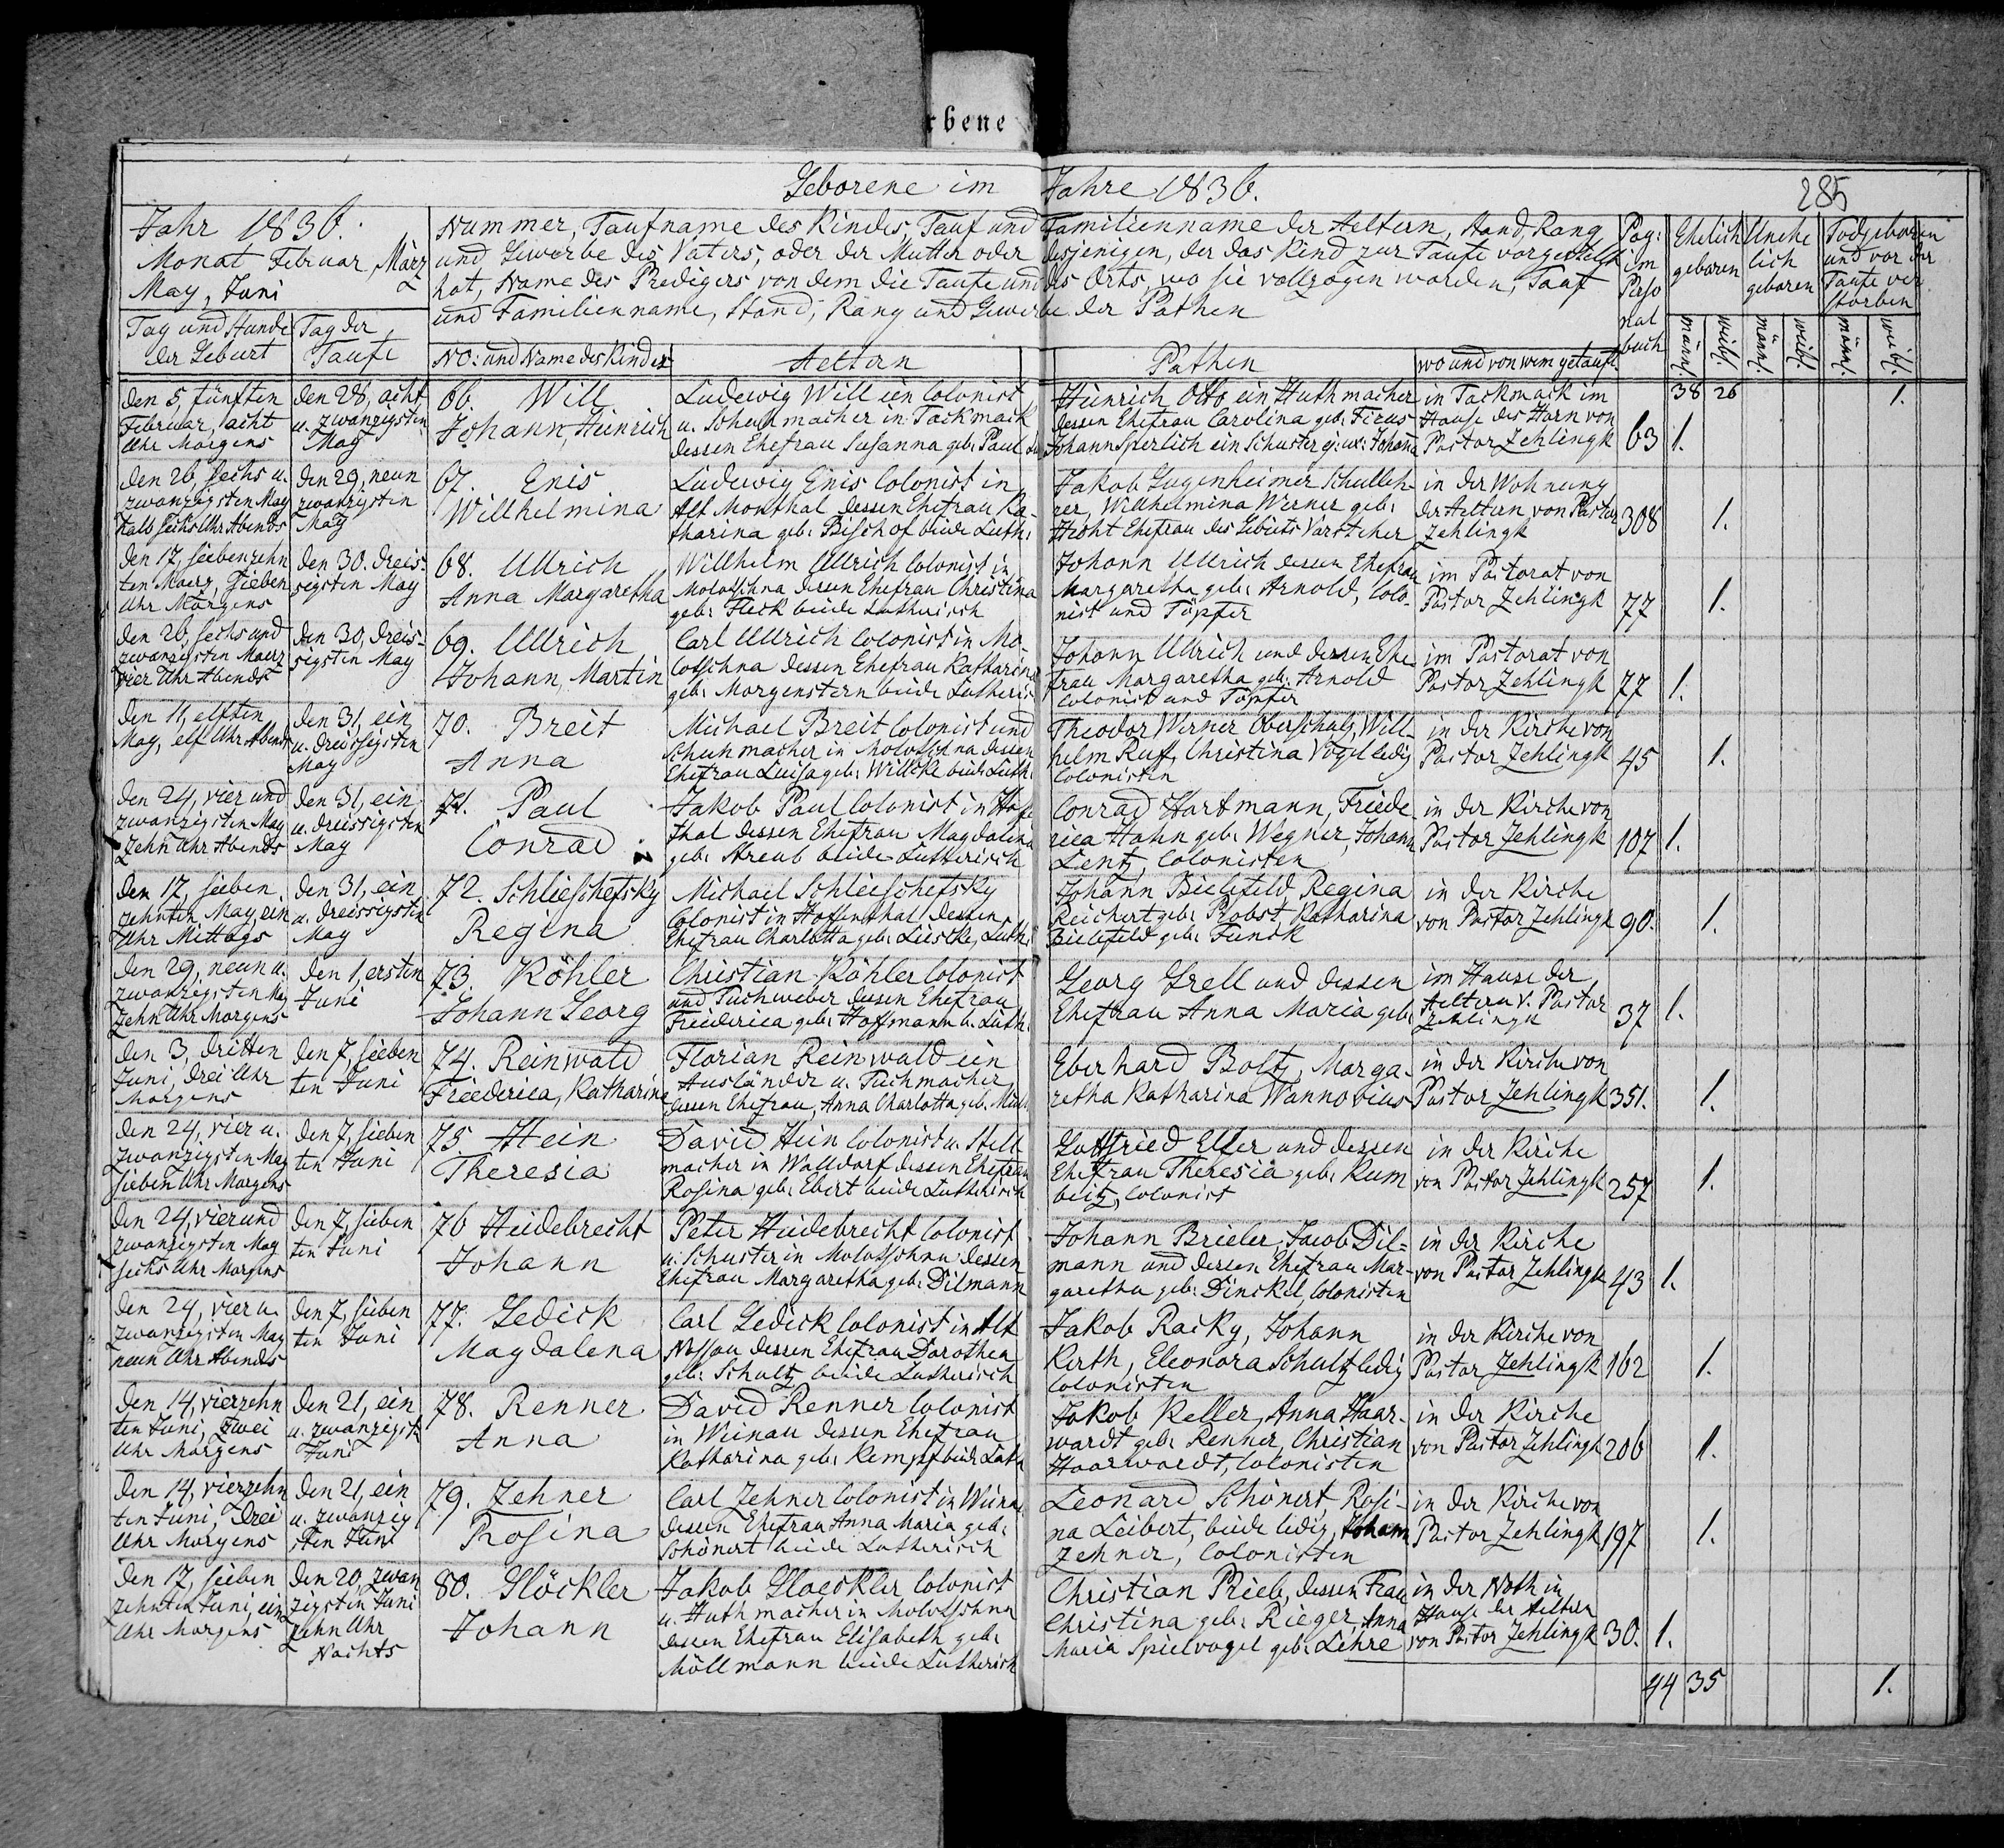 rbene
Geborene im Jahre 1836.
285
Jahr 1836.
Monat Februar, März
May, Juni
Nummer, Taufname des Kindes, Tauf und Familienname der Aeltern, Stand, Rang
und Gewerbe des Vaters, oder der Mutter oder desjenigen, der das Kind zur Taufe vorgestellt
hat, Name des Predigers von dem die Taufe und des Orts, wo sie vollzogen worden, Tauf
und Familienname, Stand, Rang und Gewerbe der Pathen
Pag:
im
Perso
nal
buch
Ehelich
geboren
Unehe
lich
geboren
Todgeboren
und vor der
Taufe ver
storben
Tag und Stunde
der Geburt
Tag der
Taufe
No: und Name des Kindes
Aeltern
Pathen
wo und von wem getauft
männl. weibl. männl. weibl. männl. weibl.
38 26 1.
den 5, fünften
Februar, acht
Uhr Morgens
den 28, acht
u. zwanzigsten
May
66. Will
Johann, Heinrich
Ludewig Will ein Colonist
u. Schuhmacher in Tackmack
dessen Ehefrau Susanna geb: Paul
Heinrich Otto ein Huthmacher
dessen Ehefrau Carolina geb:
Johann Sperlich ein Schuster
in Tackmack im
Hause des Herrn von
Pastor Zehlingk
63 1.
den 26, sechs u.
zwanzigsten May
halb sechs Uhr Abends
den 29, neun
zwanzigsten
May
67. Enis
Willhelmina
Ludewig Enis Colonist in
Alt Monthal dessen Ehefrau Ka
tharina geb: Bischof beide Luth:
Jakob Gugenheimer Schulleh-
rer, Willhelmina Werner geb:
Hecht Ehefrau des Gebiets Vorsteher
in der Wohnung
der Aeltern von Pastor
Zehlingk
308 1.
den 17, siebenzehn
ten Maerz, sieben
Uhr Morgens
den 30. dreis-
sigsten May
68. Ullrich
Anna Margaretha
Willhelm Ullrich Colonist in
Molotschna dessen Ehefrau Christina
geb: Fleck beide Lutherisch
Johann Ullrich dessen Ehefrau
Margaretha geb: Arnold, Colo-
nist und Töpfer
im Pastorat von
Pastor Zehlingk
77 1.
den 26, sechs und
zwanzigsten Maerz
vier Uhr Abends
den 30, dreis-
sigsten May
69. Ullrich
Johann, Martin
Carl Ullrich Colonist in Mo-
lotschna dessen Ehefrau Katharina
geb: Morgenstern beide Lutheris
Johann Ullrich und dessen Ehe-
frau Margaretha geb: Arnold
Colonist und Töpfer
im Pastorat von
Pastor Zehlingk
77 1.
den 11, elften
May, elf Uhr Abends
den 31, ein
u. dreissigsten
May
70. Breit
Anna
Michael Breit Colonist und
Schuhmacher in Molotschna dessen
Ehefrau Luisa geb: Willcke beide Luth:
Theodor Werner Oberschulz, Will-
helm Ruff, Christina Vogel ledig
Colonisten
in der Kirche von
Pastor Zehlingk
45 1.
den 24, vier und
zwanzigsten May
zehn Uhr Abends
den 31, ein
u. dreissigsten
May
71. Paul
Conrad
Jakob Paul Colonist in Hoffe
thal dessen Ehefrau Magdalena
geb: Streub beide Lutherisch
Conrad Hartmann, Friede
rica Hahn geb: Wegner, Johann
Lentz, Colonisten
in der Kirche von
Pastor Zehlingk
107 1.
den 17, sieben
zehnten May, ein
Uhr Mittags
den 31, ein
u. dreissigsten
May
72. Schlieschefsky
Regina
Michael Schlieschefsky
Colonist in Hoffenthal dessen
Ehefrau Charlotta geb: Lieske, Luth:
Johann Bielefeld, Regina
Reichert geb: Probst, Katharina
Bielefeld geb: Funck
in der Kirche
von Pastor Zehlingk
90. 1.
den 29, neun u.
zwanzigsten May
zehn Uhr Morgens
den 1, ersten
Juni
73. Köhler
Johann Georg
Christian Köhler Colonist
und Tuchweber dessen Ehefrau
Friederica geb: Hoffmann b. Luth:
Georg Grell und dessen
Ehefrau Anna Maria geb:
im Hause der
Aeltern v. Pastor
Zehlingk
37 1.
den 3, dritten
Juni, drei Uhr
Morgens
den 7, sieben
ten Juni
74. Reinwald
Friederica, Katharine
Florian Reinwald ein
Ausländer u. Tuchmacher
dessen Ehefrau, Anna Charlotta geb:
Eberhard Boltz, Marga-
retha Katharina Wannovius
in der Kirche von
Pastor Zehlingk
351. 1.
den 24, vier u.
zwanzigsten May
sieben Uhr Morgens
den 7, sieben
ten Juni
75 Hein
Theresia
David Hein Colonist u. Stell
macher in Walldorf dessen Ehefrau
Rosina geb: Ebert beide Lutherisch
Gottfried Eller und dessen
Ehefrau Theresia geb: Kum
beitz, Colonist
in der Kirche
von Pastor Zehlingk
257 1.
den 24, vier und
zwanzigsten May
sechs Uhr Morgens
den 7, sieben
ten Juni
76 Heidebrecht
Johann
Peter Heidebrecht Colonist
u. Schuster in Molotschna dessen
Ehefrau Margaretha geb: Dilmann
Johann Brieler, Jacob Dil-
mann und dessen Ehefrau Mar-
garetha geb: Dinckel, Colonisten
in der Kirche
von Pastor Zehlingk
43 1.
den 24, vier u.
zwanzigsten May
neun Uhr Abends
den 7, sieben
ten Juni
77. Gedick
Magdalena
Carl Gedick Colonist in Alt
Nassau dessen Ehefrau Dorothea
geb: Schultz beide Lutherisch
Jakob Racky, Johann
Kerth, Eleonora Schultz ledig
Colonisten
in der Kirche von
Pastor Zehlingk
162 1.
den 14, vierzehn
ten Juni, zwei
Uhr Morgens
den 21, ein
u. zwanzigst:
Juni
78. Renner
Anna
David Renner Colonist
in Weinau dessen Ehefrau
Katharina geb: Kempf beide Luth
Jakob Keller, Anna Haar-
wardt geb: Renner, Christian
Haarwardt, Colonisten
in der Kirche
von Pastor Zehlingk
206 1.
den 14, vierzehn
ten Juni, drei
Uhr Morgens
den 21, ein
u. zwanzig
sten Juni
79. Zehner
Rosina
Carl Zehner Colonist in Weina
dessen Ehefrau Anna Maria geb:
Schönert beide Lutherisch
Leonard Schönert, Rosi-
na Leibert, beide ledig, Johann
Zehner, Colonisten
in der Kirche von
Pastor Zehlingk
197 1.
den 17, sieben
zehnten Juni, ein
Uhr Morgens
den 20, zwan
zigsten Juni
zehn Uhr
Nachts
80. Glöckler
Johann
Jakob Gloeckler Colonist
u. Huthmacher in Molotschna
dessen Ehefrau Elisabeth geb:
Möllmann beide Lutherisch
Christian Prieb, dessen Frau
Christina geb: Rieger, Anna
Maria Spielvogel geb: Lehre
in der Noth in
Hause der Aeltern
von Pastor Zehlingk
30. 1.
44 35 1.